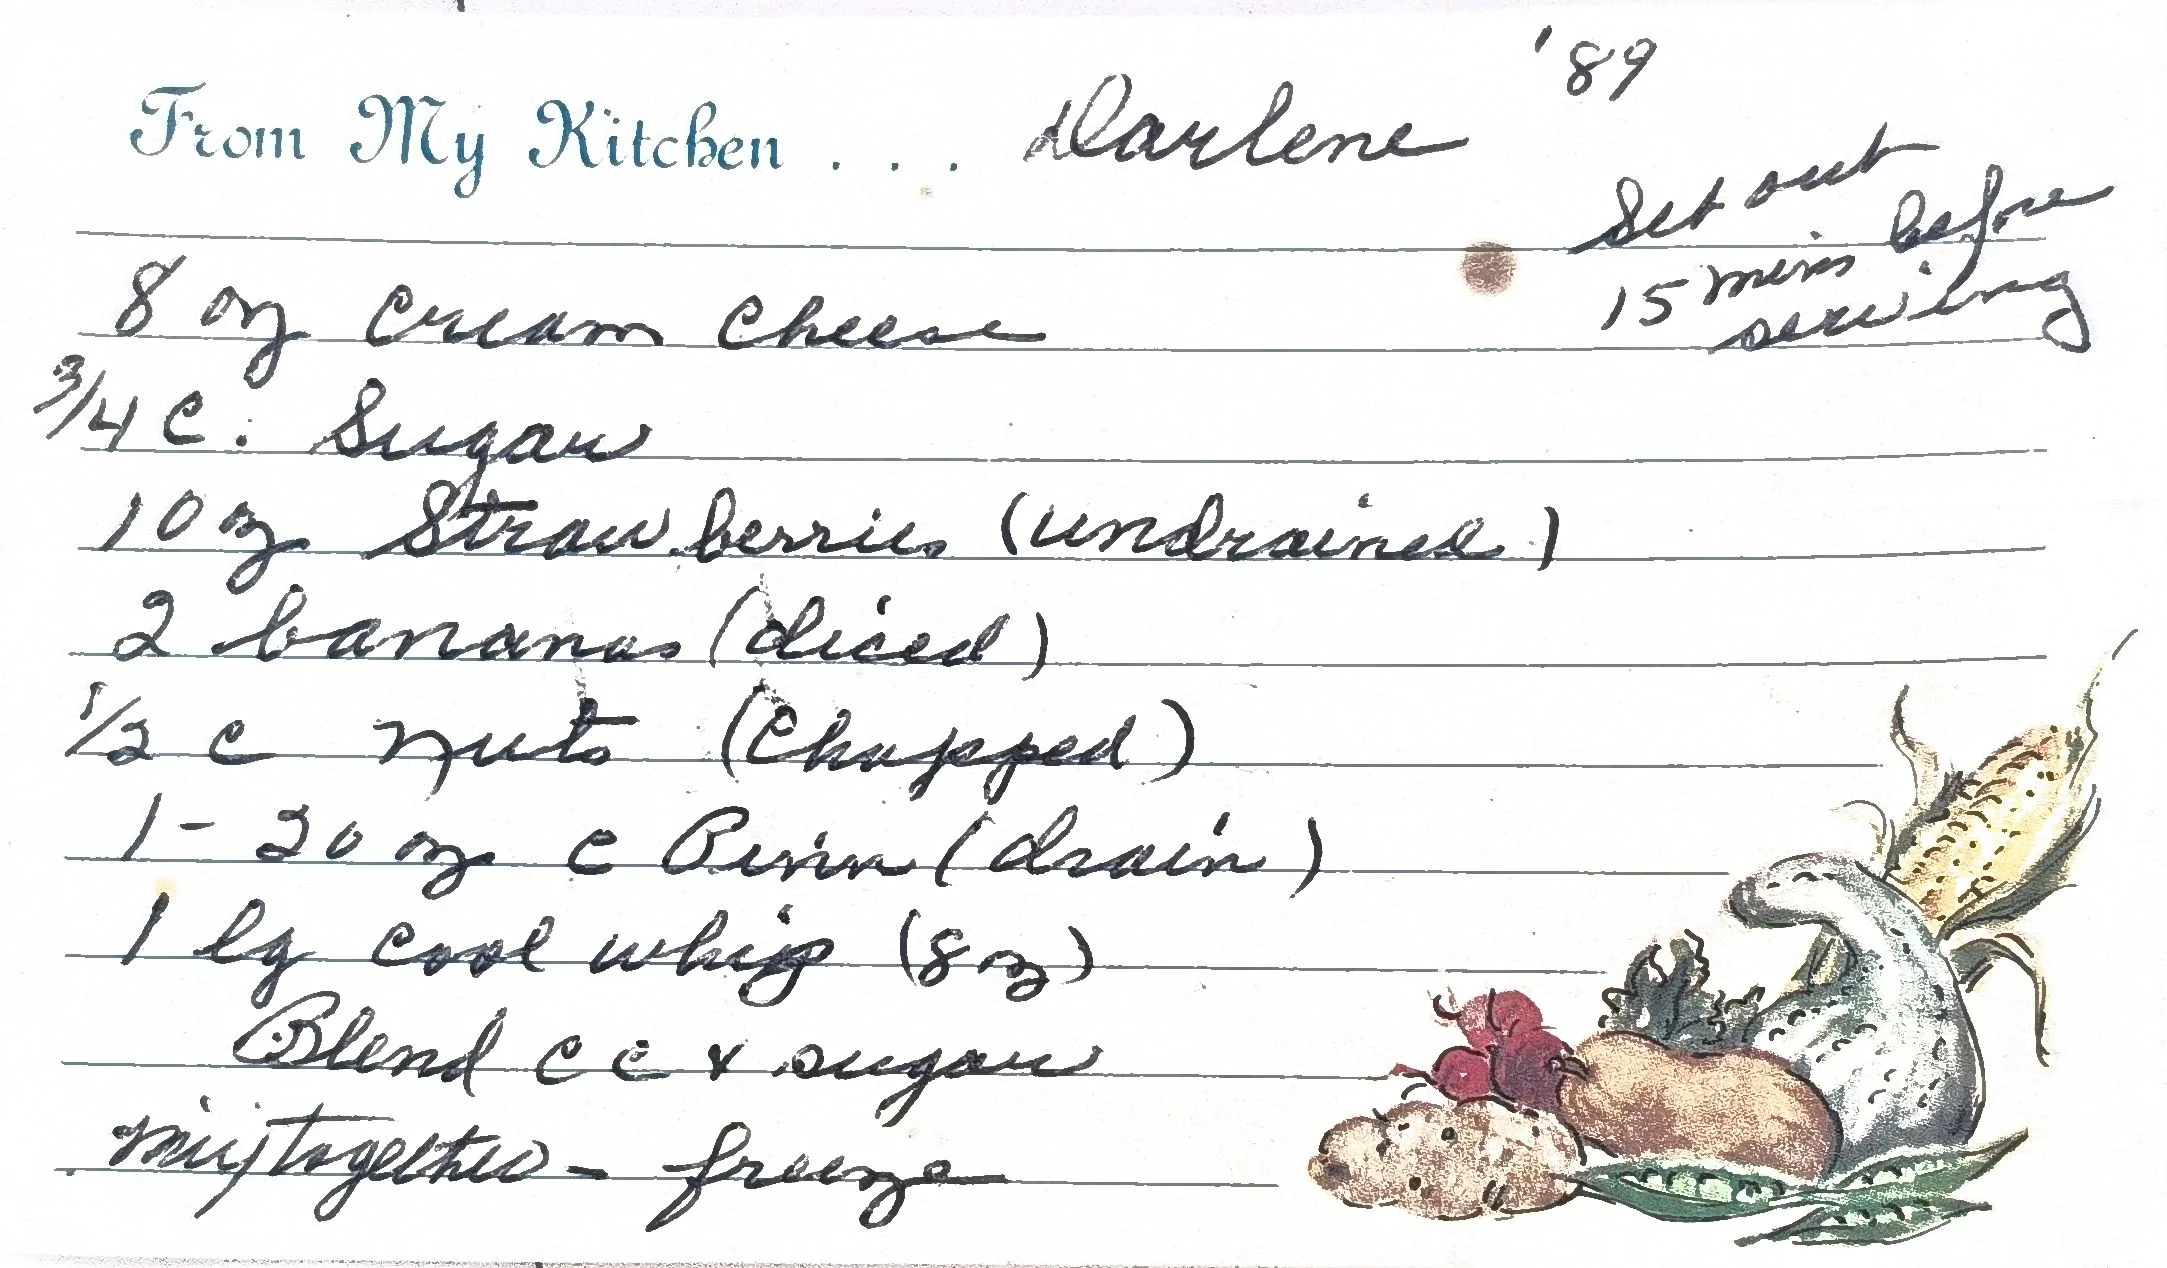 '89
From My Kitchen . . . Darlene
Set out
15 mins before
serving
8 oz Cream Cheese
3/4 C. Sugar
10 oz Strawberries (undrained)
2 bananas (diced)
1/2 c nuts (Chopped)
1 - 20 oz c Pinn (drain)
1 lg cool whip (8 oz)
Blend cc & sugar
mix together - freeze